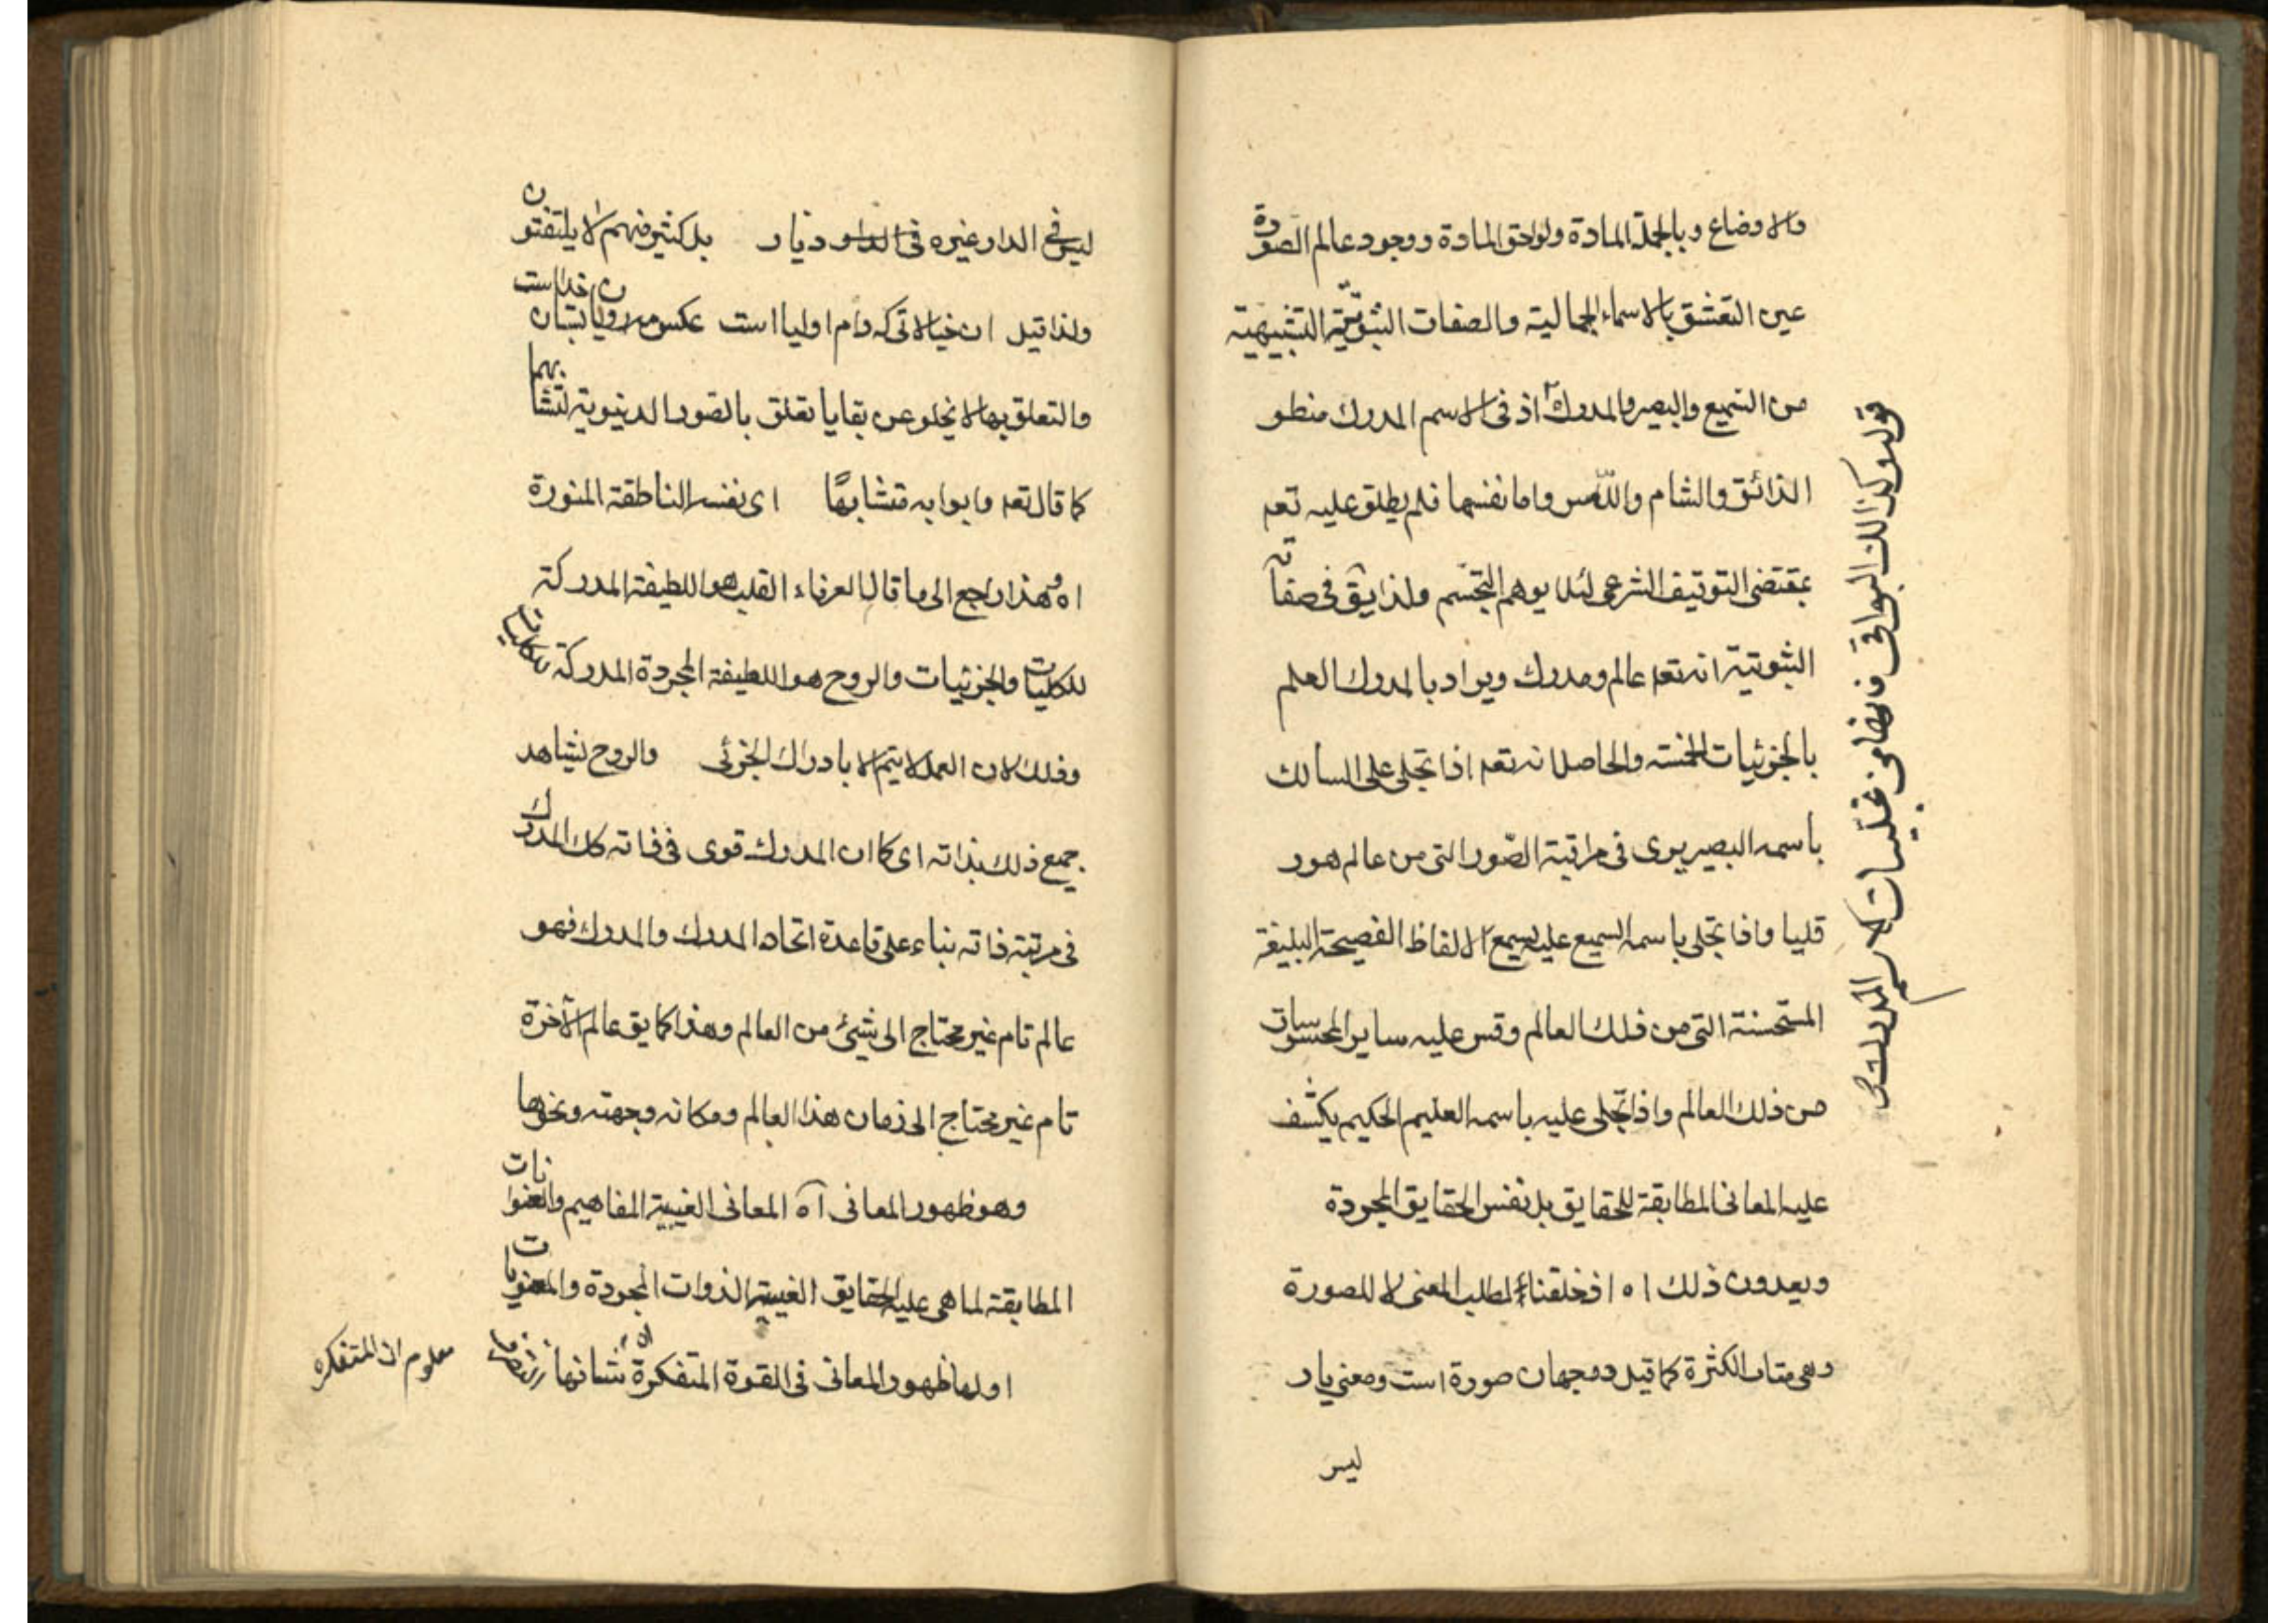 والاوضاع وبالجملة المادة ولواحق المادة ووجود عالم الصورة
عين التعشق بالاسماء الجمالية والصفات الثبوتية التشبيهية
من السميع والبصير والمدرك اذ فى الاسم المدرك منطو
الذائق والشام واللامس واما نفسها فلم يطلق عليه تعم
بمقتضى التوقيف الشرعى لئلا يوهم التجسم ولذا يق فى صفاته
الثبوتية انه تعم عالم ومدرك ويراد بالمدرك العلم
بالجزئيات الخمسة والحاصل انه تعم اذا تجلى على السالك
باسمه البصير يرى فى مراتبة الصّور التى من عالم هور
قليا واذا تجلى باسمه السميع عليه يسمع الالفاظ الفصيحة البليغة
المستحسنة التى من ذلك العالم وقس عليه ساير المحسوسات
من ذلك العالم واذا تجلى عليه باسمه العليم الحكيم يكشف
عليه المعانى المطابقة للحقايق بل نفس الحقايق المجردة
ويعدون ذلك اه اذ خلقنا لمطلب المعنى لا للصورة
وهى مثار الكثرة كما قيل دو جهان صورة است ومعنى يار
ليس
قوله وكذالك البواقى
المدرك
ليس فى الدار غيره فى الدار ديار بل كثير منهم لا يلتفتون
ولذا قيل ان خيالاتى كه دام اوليا است عكس مه رويان بستان خداست
والتعلق بها لا يخلو عن بقايا تعلق بالصور الدنيوية لتشابهما
كما قال تعم واتوا به متشابهًا اى نفسه الناطقة المنورة
اه وهذا راجع الى ما قال العرفاء القلب هو اللطيفة المدركة
للكليات والجزئيات والروح هو اللطيفة المجردة المدركة للكليات
وذلك لان العمل لا يتم الا بادراك الجزئى والروح يشاهد
جميع ذلك بذاته اى كما ان المدرك قوى فى ذاته كك المدرك
فى مرتبة ذاته بناء على قاعدة اتحاد المدرك والمدرك فهو
عالم تام غير محتاج الى شيئ من العالم وهذا كما يق عالم الآخرة
تام غير محتاج الى زمان هذا العالم ومكانه وجهته ونحوها
وهو ظهور المعانى آه المعانى الغيبية المفاهيم والعنوانات
المطابقة لما هى عليه الحقايق الغيبية الذوات المجردة والمعنويات
اولها ظهور المعانى فى القوة المتفكرة شانها
معلوم ان المتفكره